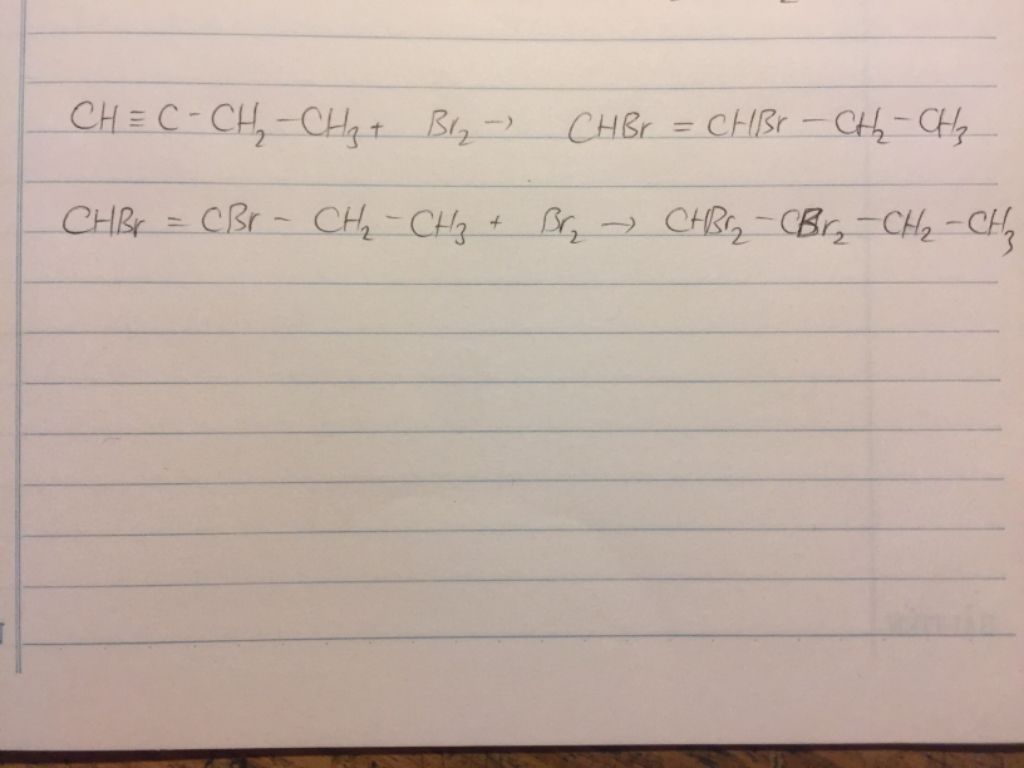 CH ≡ C - CH₂ - CH₃ + Br₂ → CHBr = CHBr - CH₂ - CH₃
CHBr = CBr - CH₂ - CH₃ + Br₂ → CHBr₂ - CBr₂ - CH₂ - CH₃